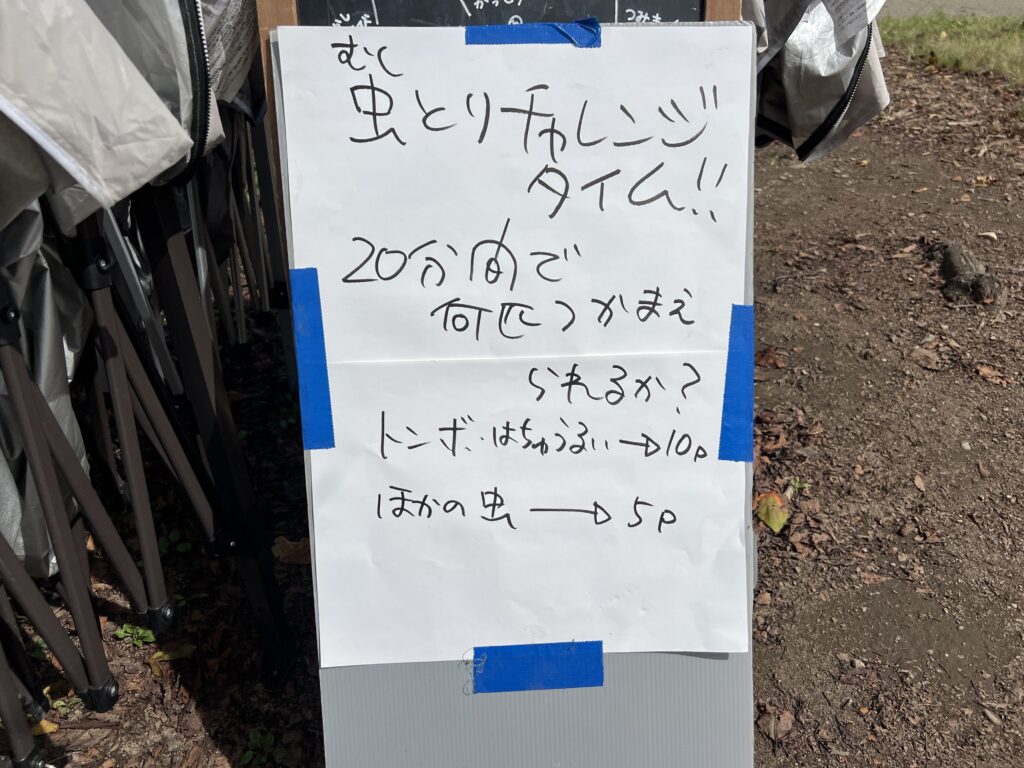 むし
虫とりチャレンジ
タイム!!
20分間で
何匹つかまえ
られるか?
トンボ・はちゅうるい→10p
ほかの虫→5p